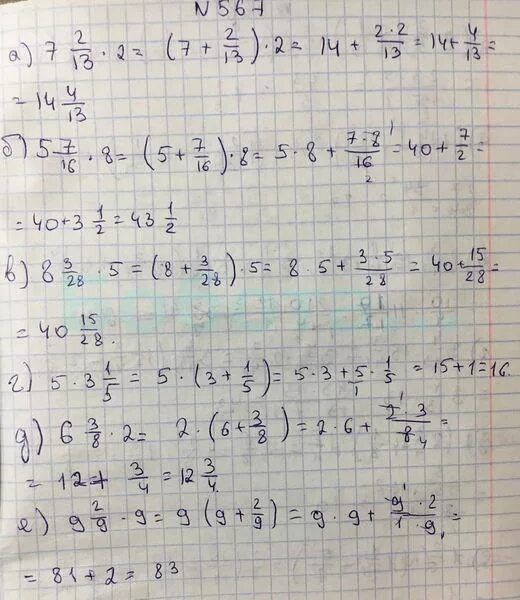 N 567
а) 7 2/13 · 2 = (7 + 2/13) · 2 = 14 + 2·2/13 = 14 + 4/13 =
= 14 4/13
б) 5 7/16 · 8 = (5 + 7/16) · 8 = 5 · 8 + 7·8 1/16 2 = 40 + 7/2 =
= 40 + 3 1/2 = 43 1/2
в) 8 3/28 · 5 = (8 + 3/28) · 5 = 8 · 5 + 3·5/28 = 40 + 15/28 =
= 40 15/28.
г) 5 · 3 1/5 = 5 · (3 + 1/5) = 5 · 3 + 5/1 · 1/5 = 15 + 1 = 16.
д) 6 3/8 · 2 = 2 · (6 + 3/8) = 2 · 6 + 2 1 · 3/8 4 =
= 12 + 3/4 = 12 3/4.
е) 9 2/9 · 9 = 9 (9 + 2/9) = 9 · 9 + 9 1 · 2/1 · 9 1 =
= 81 + 2 = 83